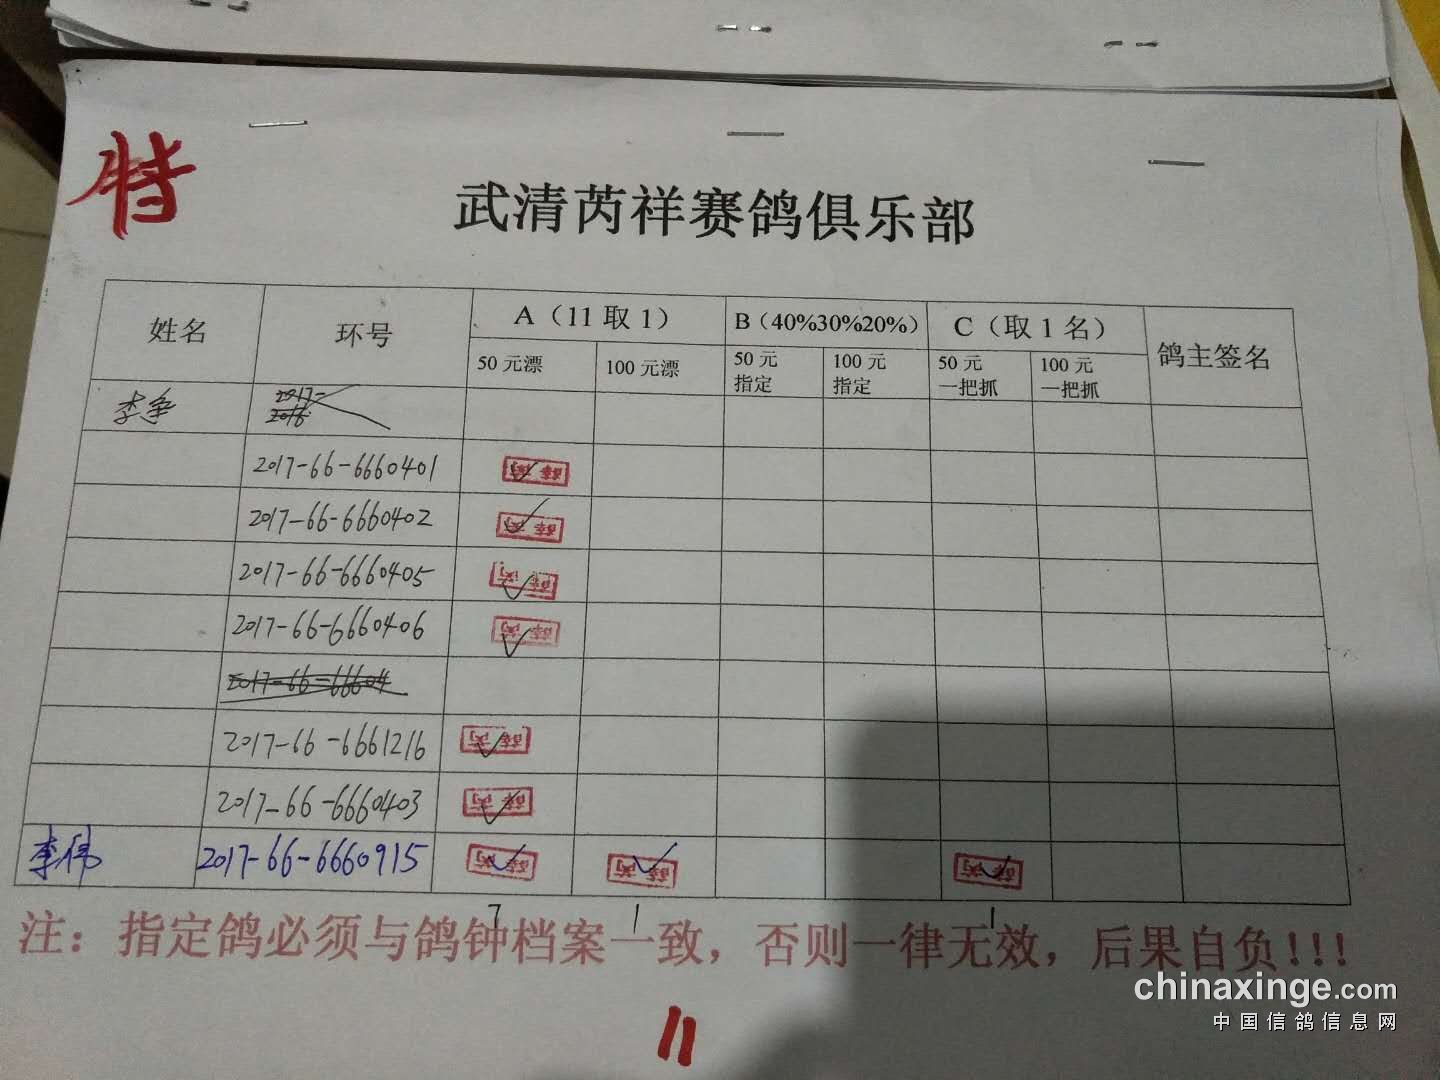 特
武清芮祥赛鸽俱乐部
姓名 环号 A（11 取 1） B（40%30%20%） C（取 1 名） 鸽主签名
50 元漂 100 元漂 50 元 指定 100 元 指定 50 元 一把抓 100 元 一把抓
李争 2017- 2016
2017-66-6660401 ✓
2017-66-6660402 ✓
2017-66-6660405 ✓
2017-66-6660406 ✓
2017-66-66604
2017-66-6661216 ✓
2017-66-6660403 ✓
李伟 2017-66-6660915 ✓ ✓ ✓
7 1 1
注：指定鸽必须与鸽钟档案一致，否则一律无效，后果自负!!!
chinaxinge.com
中国信鸽信息网
11